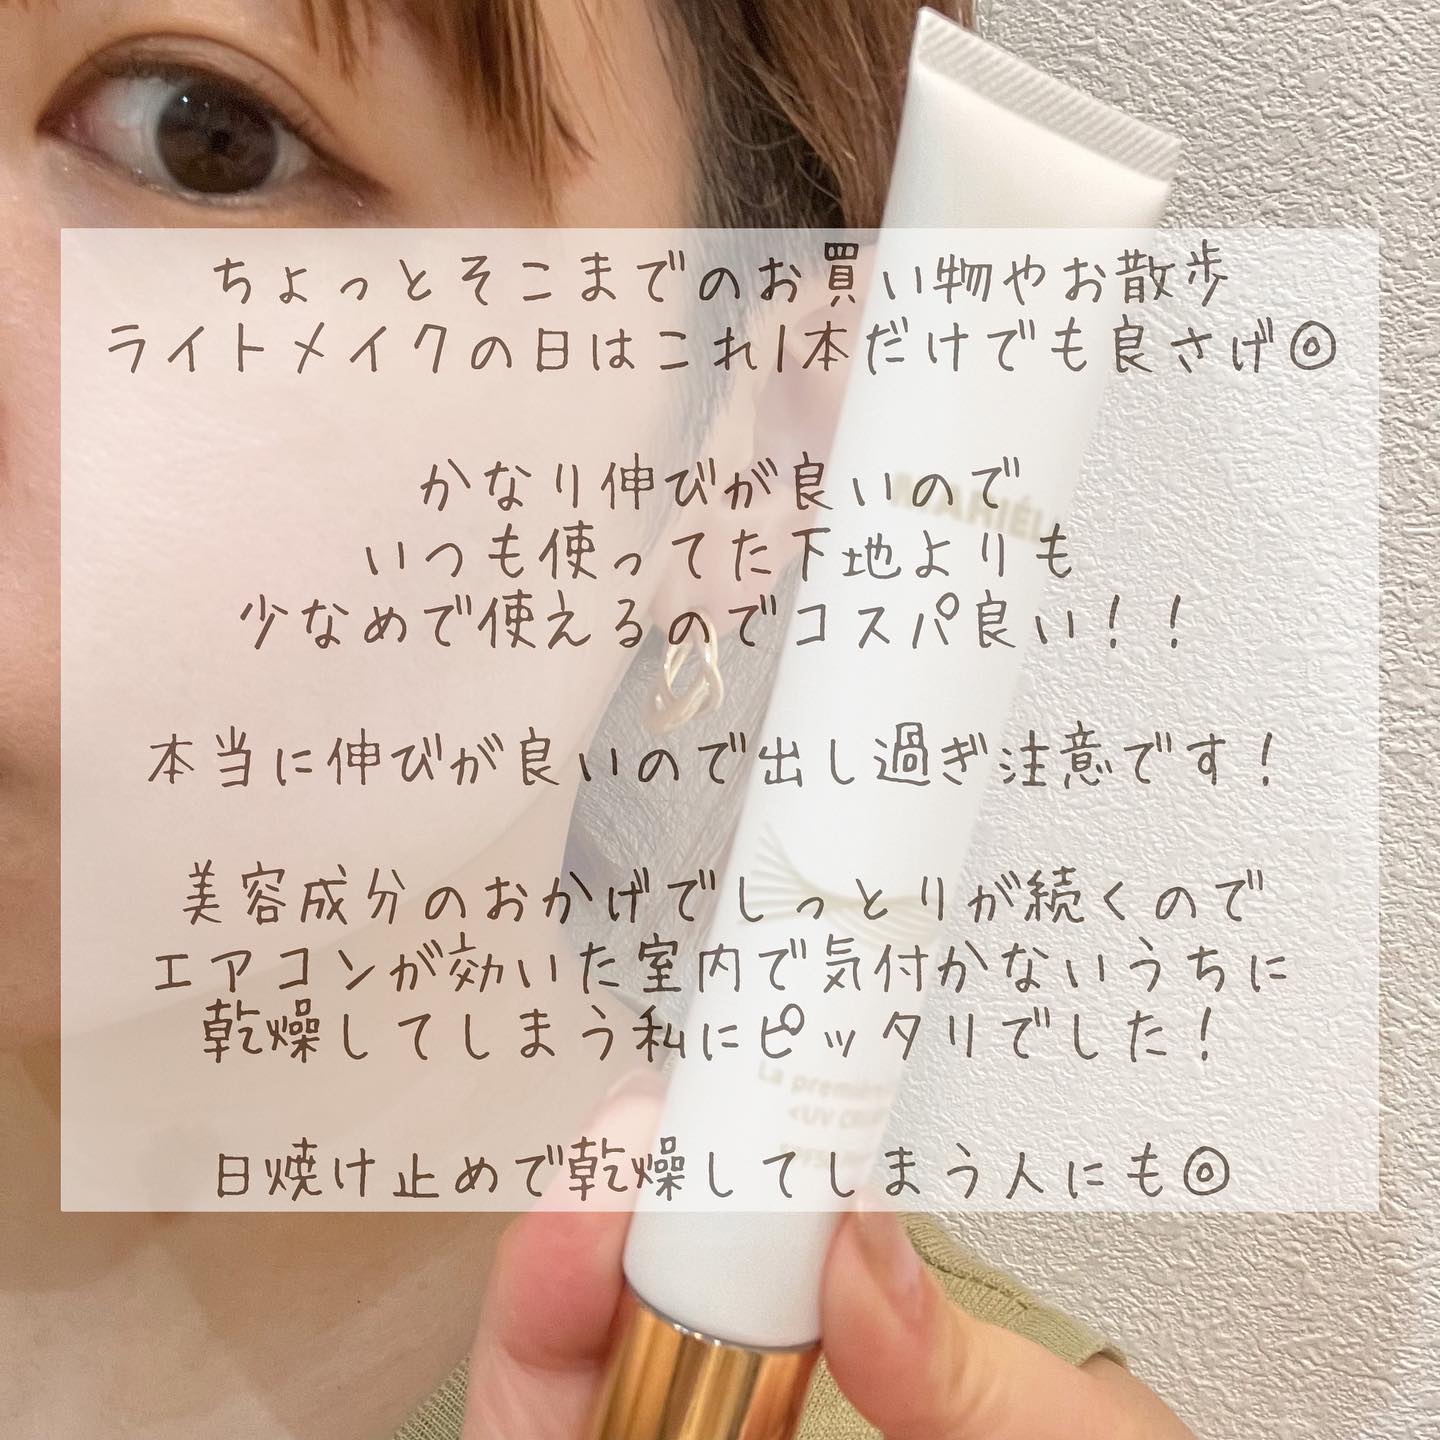 ちょっとそこまでのお買い物やお散歩
ライトメイクの日はこれ1本だけでも良さげ◎
かなり伸びが良いので
いつも使ってた下地よりも
少なめで使えるのでコスパ良い！！
本当に伸びが良いので出し過ぎ注意です！
美容成分のおかげでしっとりが続くので
エアコンが効いた室内で気付かないうちに
乾燥してしまう私にピッタリでした！
日焼け止めで乾燥してしまう人にも◎
MARIÉL
La premiè
<UV